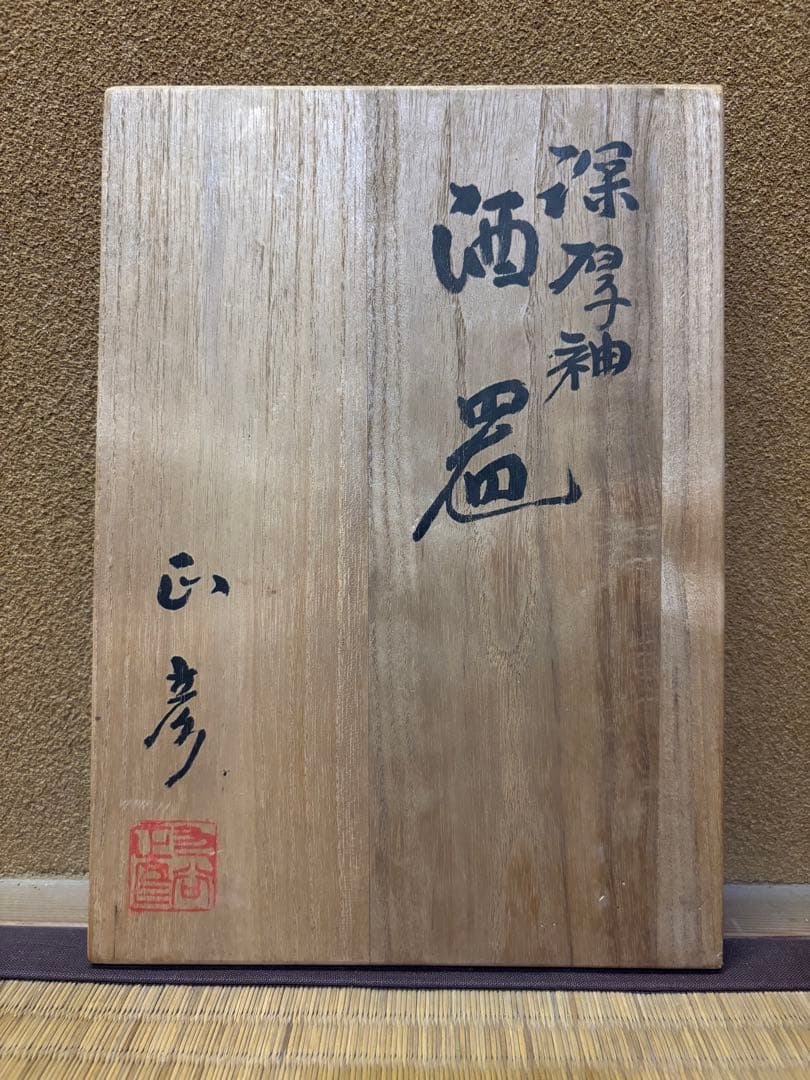 深厚釉
酒器
正彦